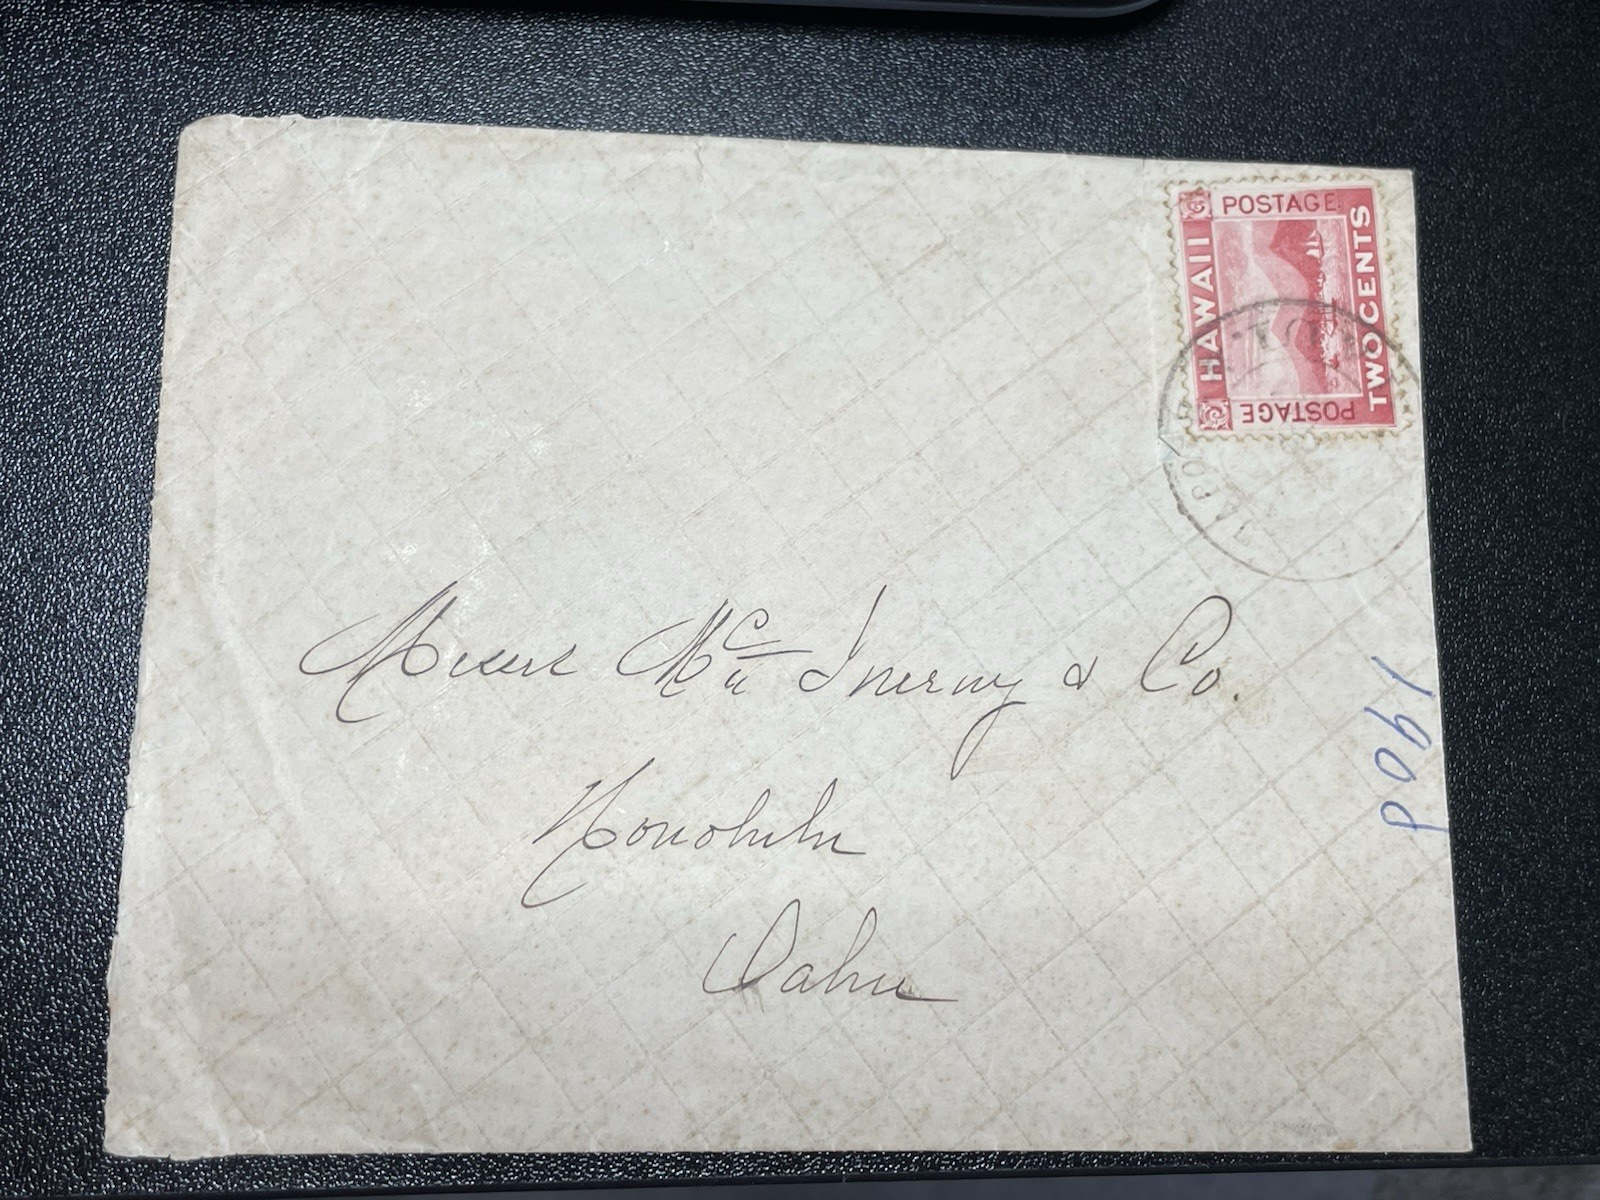 POSTAGE
HAWAII
TWO CENTS
POSTAGE
Messrs Mc Inerny & Co.
Honolulu
Oahu
190d